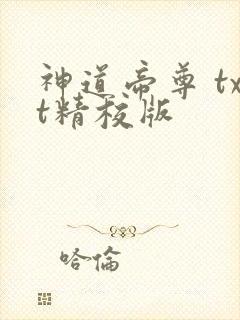 神道帝尊 tx
t精校版
哈倫